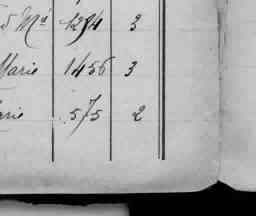 d Mᵃ 1274 3
Marie 1456 3
arie 575 2